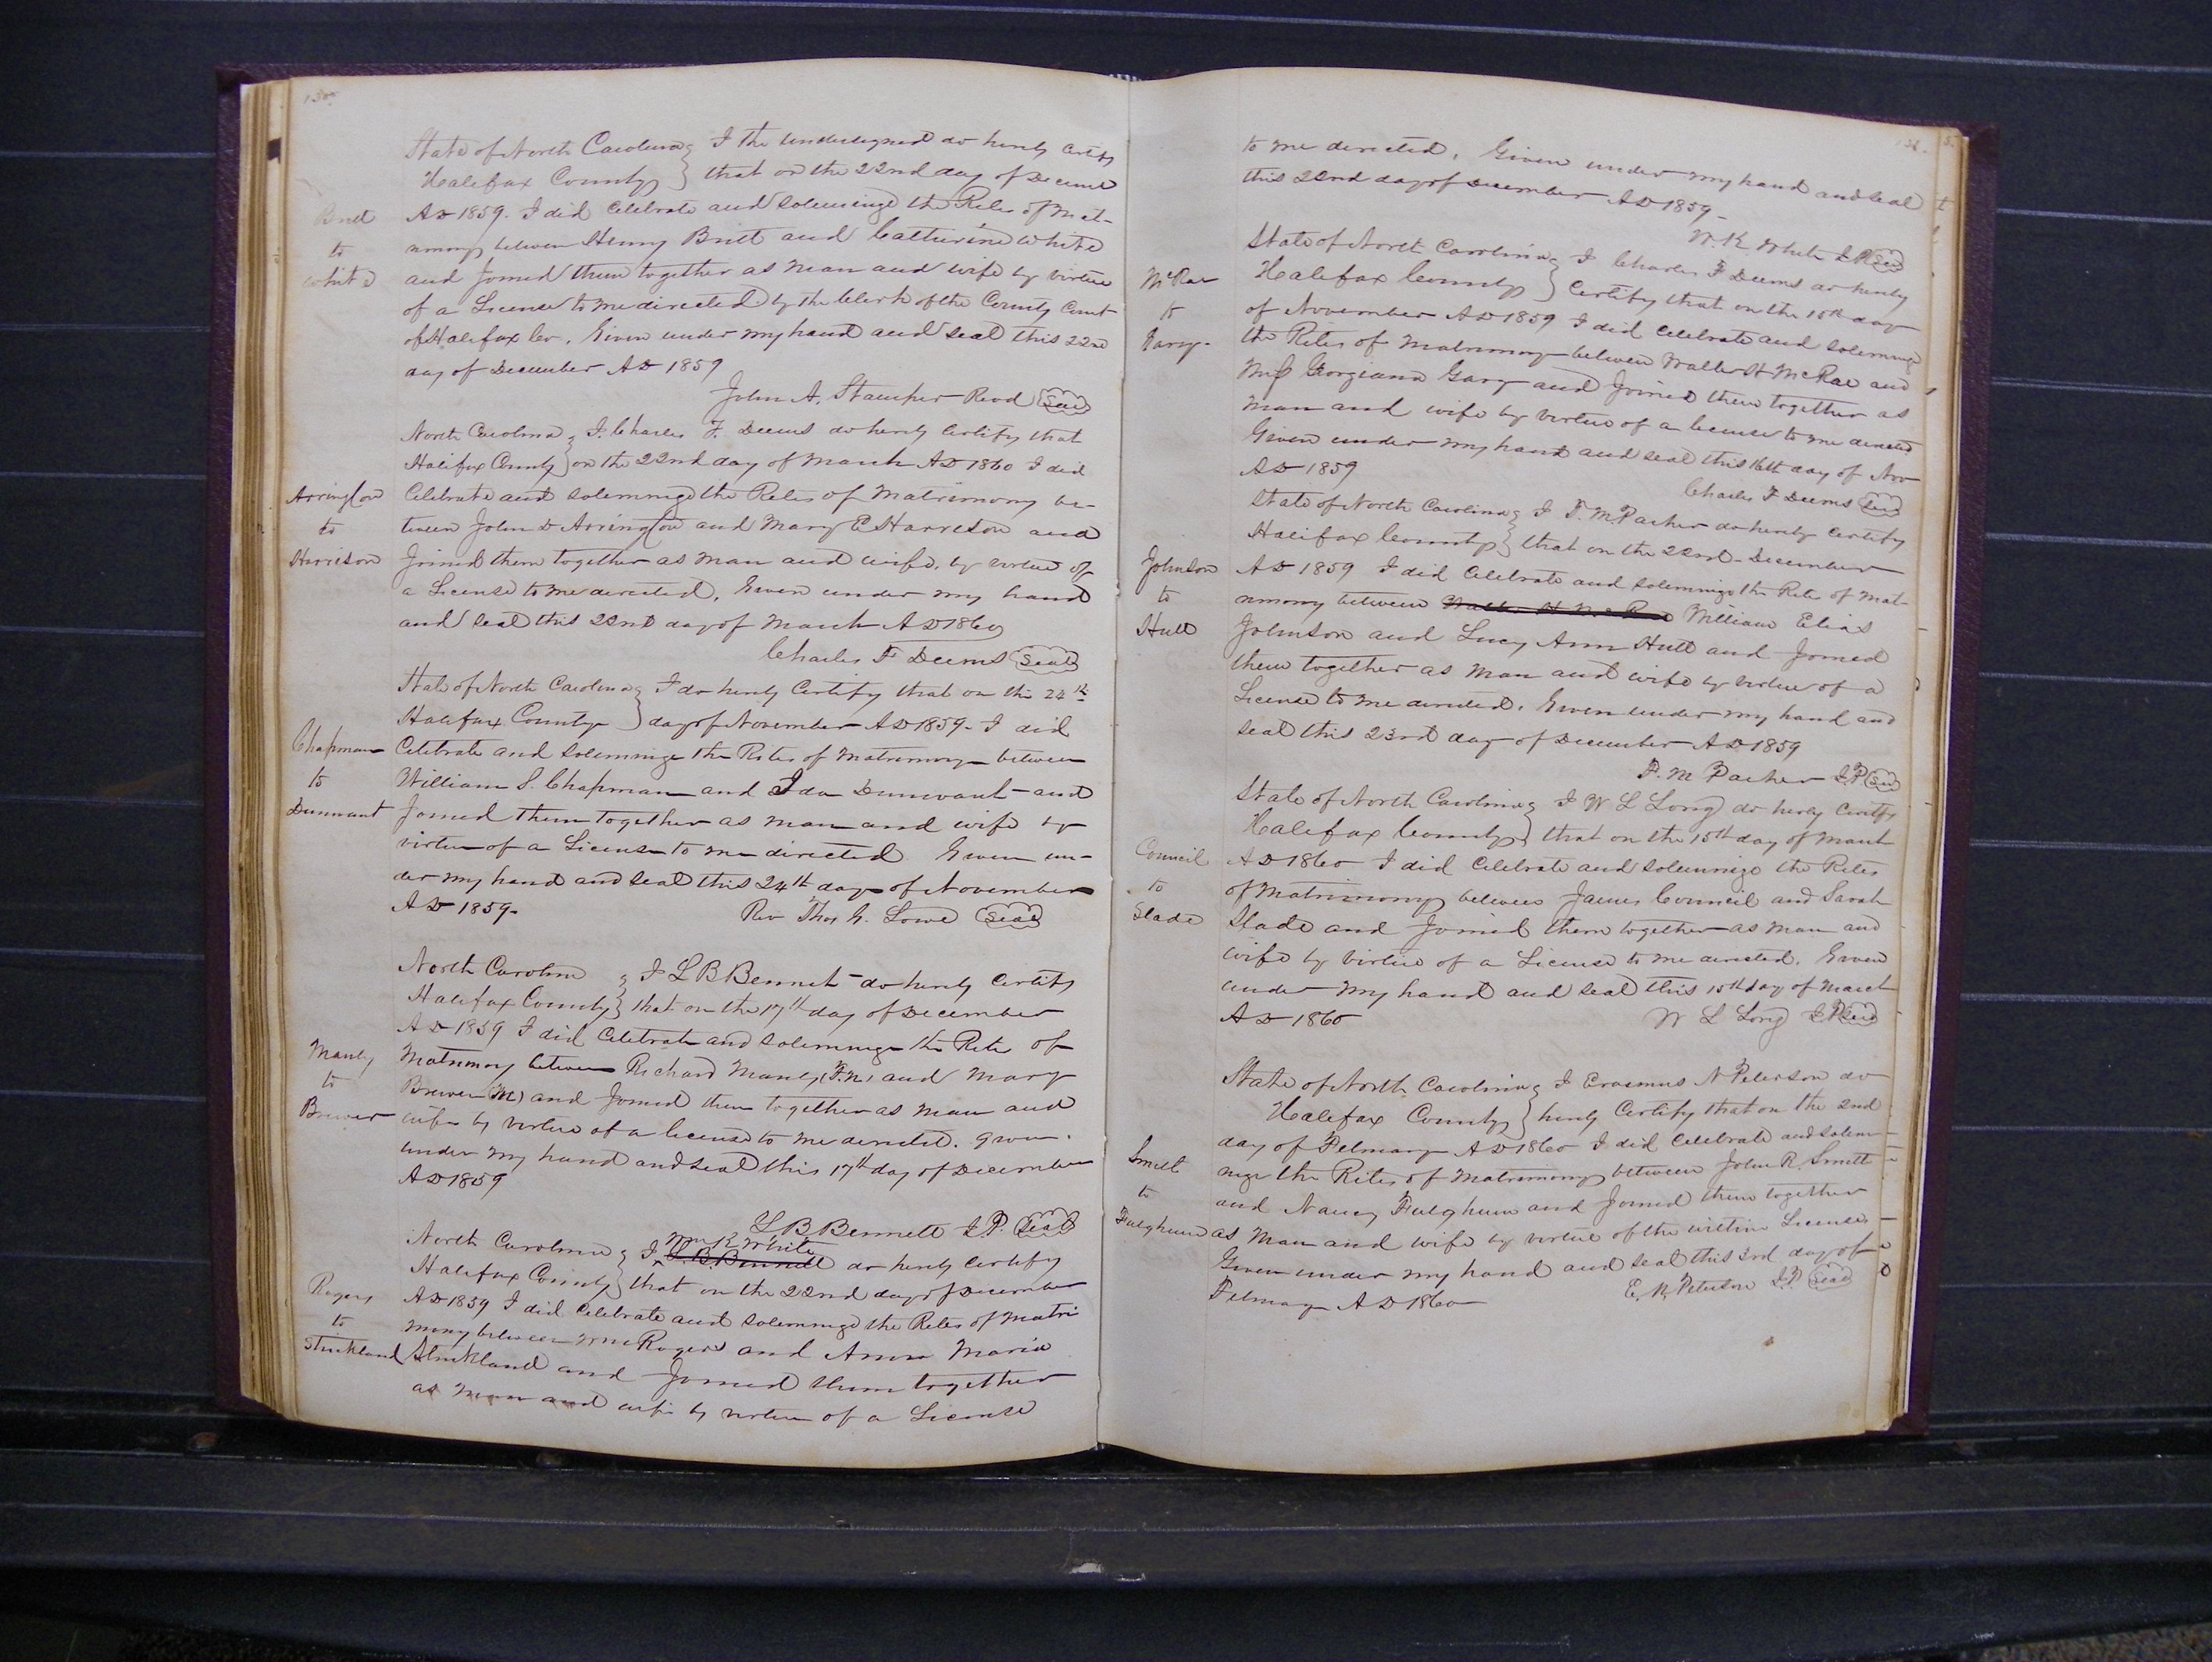 130.
State of North Carolina } I the undersigned do hereby certify
Halifax County } that on the 22nd day of Decemb
AD 1859. I did Celebrate and Solemnize the Rites of Mat-
Britt to White
rimony between Henry Britt and Catherine White
and Joined them together as Man and wife by virtue
of a License to me directed by the Clerk of the County Court
of Halifax Co. Given under my hand and seal this 22nd
day of December AD 1859
John A. Stamper Revd Seal
North Carolina } I. Charles F. Deems do hereby Certify that
Halifax County } on the 22nd day of March AD 1860 I did
Arrington to Harrison
Celebrate and Solemnize the Rites of Matrimony be-
tween John D Arrington and Mary E Harrison and
Joined them together as man and wife, by virtue of
a License to me directed. Given under my hand
and Seal this 22nd day of March AD 1860
Charles F Deems Seal
State of North Carolina } I do hereby Certify that on the 24th
Halifax County } day of November AD 1859. I did
Chapman to Dunnvant
Celebrate and Solemnize the Rites of Matrimony between
William S. Chapman and Ida Dunnvant and
Joined them together as man and wife by
virtue of a License to me directed Given un-
der my hand and Seal this 24th day of November
AD 1859.
Rev Thos G. Lowe Seal
North Carolina } I L B Bennett do hereby Certify
Halifax County } that on the 17th day of December
AD 1859 I did Celebrate and Solemnize the Rites of
Manly to Brewer
Matrimony between Richard Manly (F.N) and Mary
Brewer (M) and Joined them together as Man and
wife by virtue of a license to me directed. Given
under my hand and Seal this 17th day of December
AD 1859
L B Bennett J.P. Seal
Wm K White
North Carolina } I, L. B. Bennett do hereby Certify
Halifax County } that on the 22nd day of December
Rogers to Strickland
AD 1859 I did Celebrate and Solemnize the Rites of Matri
mony between Wm Rogers and Anna Maria
Strickland and Joined them together
as Man and wife by virtue of a License
131.
to me directed. Given under my hand and seal
this 22nd day of December AD 1859.
W. K. White J.P. Seal
State of North Carolina } I Charles F Deems do hereby
Halifax County } Certify that on the 15th day
McRae to Gary
of November AD 1859 I did Celebrate and Solemnize
the Rites of Matrimony between Walter H McRae and
Georgiana Gary and Joined them together as
Man and wife by virtue of a license to me directed
Given under my hand and seal this 16th day of Nov
AD 1859
Charles F Deems Seal
State of North Carolina } I F. M. Parker do hereby Certify
Halifax County } that on the 22nd December
Johnson to Hull
AD 1859 I did Celebrate and Solemnize the Rites of Mat-
rimony between Walter H McRae William Elias
Johnson and Lucy Ann Hull and Joined
them together as Man and wife by virtue of a
License to me directed. Given under my hand and
Seal this 23rd day of December AD 1859
F. M Parker J.P. Seal
State of North Carolina } I W L Long do hereby Certify
Halifax County } that on the 15th day of March
Council to Slade
AD 1860 I did Celebrate and Solemnize the Rites
of Matrimony between James Council and Sarah
Slade and Joined them together as Man and
wife by virtue of a License to me directed. Given
under my hand and seal this 15th day of March
AD 1860
W L Long J.P. Seal
State of North Carolina } I Erasmus N Peterson do
Halifax County } hereby Certify that on the 2nd
day of February AD 1860 I did Celebrate and Solem-
Smith to Fulghum
nize the Rites of Matrimony between John R. Smith
and Nancy Fulghum and Joined them together
as Man and wife by virtue of the within License
Given under my hand and seal this 3rd day of
February AD 1860
E. N. Peterson J.P. Seal